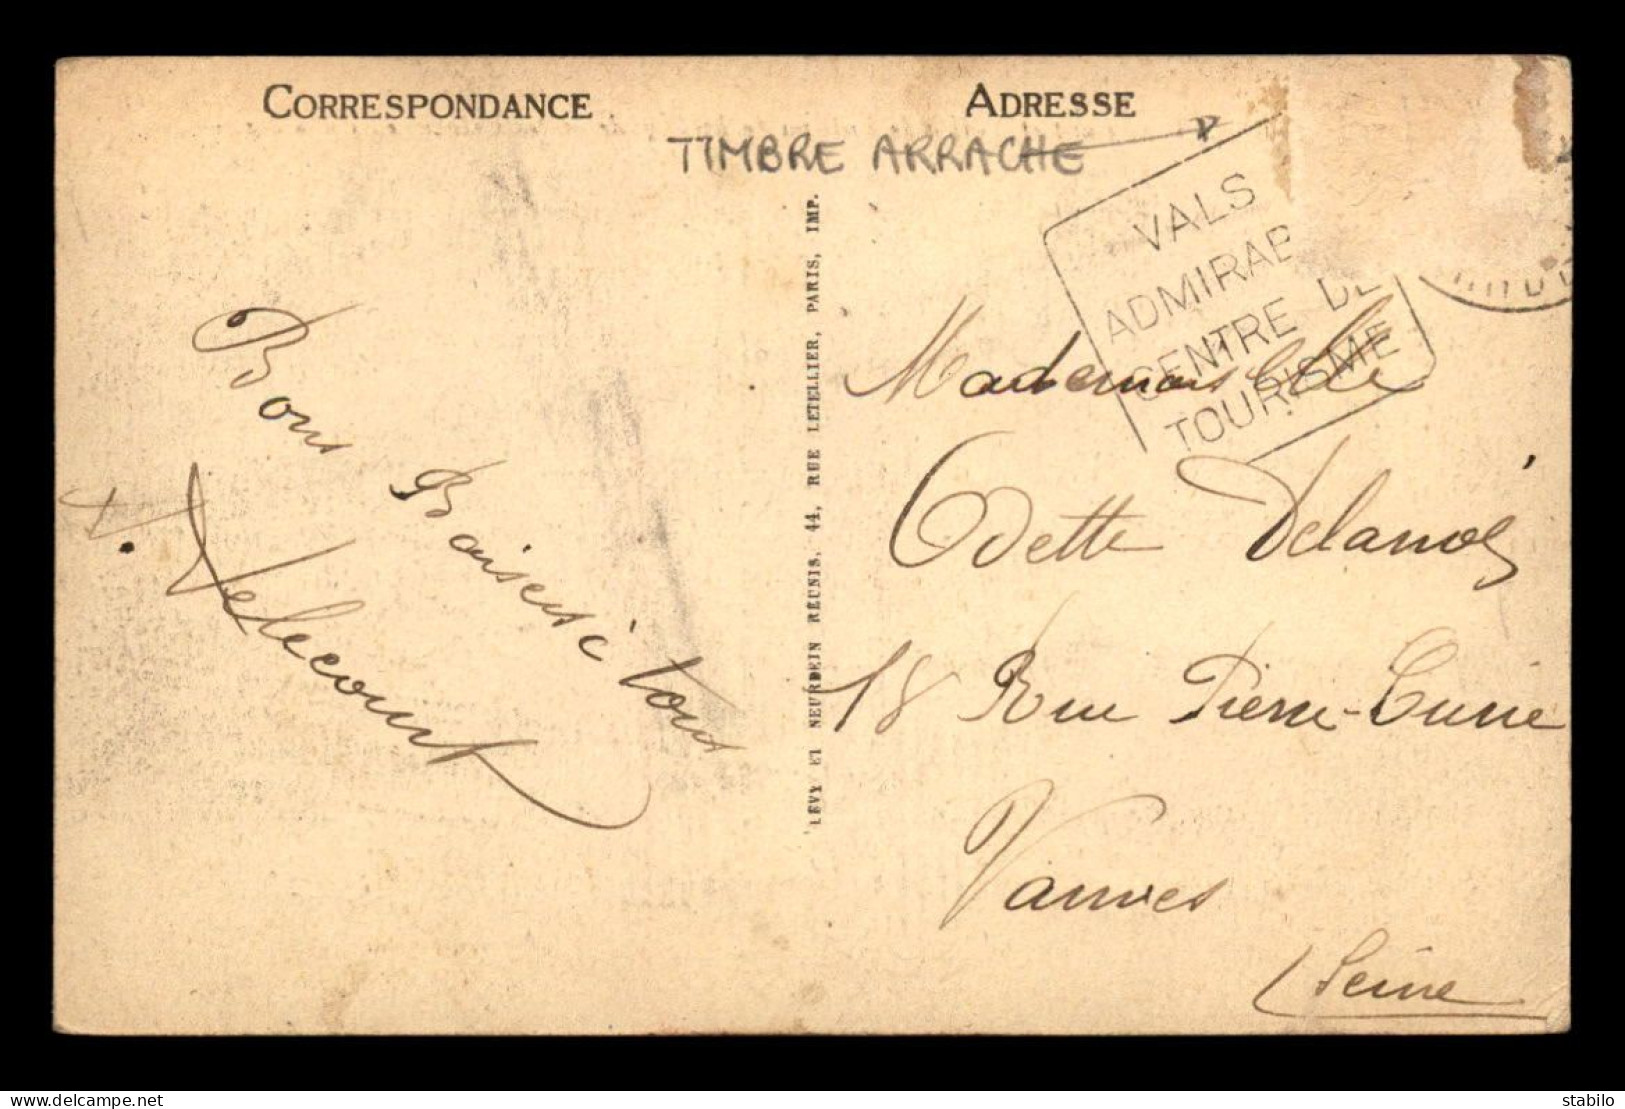 CORRESPONDANCE
ADRESSE
TIMBRE ARRACHE
VALS
ADMIRAB
CENTRE DE
TOURISME
Bons Baisers à tous
V. Delecourt
LEVY ET NEURDEIN RÉUNIS, 44, RUE LETELLIER, PARIS, IMP.
Mademoiselle
Odette
18 Rue Pierre-Curie
Vanves
(Seine
delcampe.net
stabilo